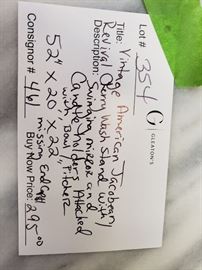 Lot # 354 G | GLEATON'S
Title: Vintage American Jacobean
Revival Cherry Wash Stand with
Description: Swinging mirror and
Candle Holders Attached
with Bowl, Pitcher
52" x 20 x 22"
missing End Cap
Consignor # 461 Buy Now Price: 295.00